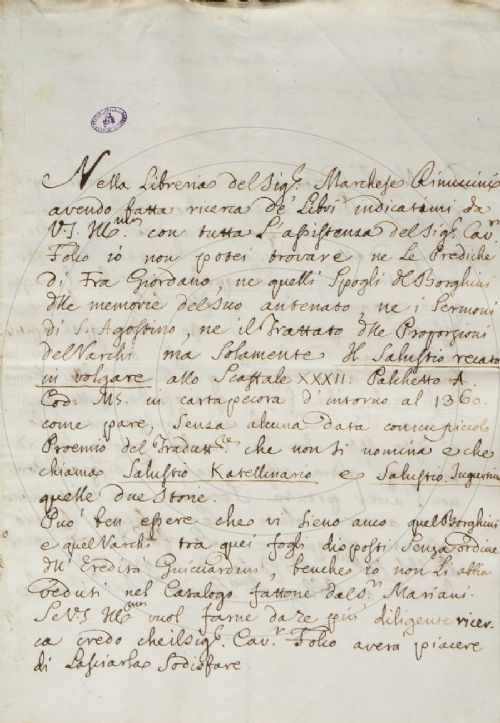 Nella Libreria del Sig.r Marchese Rinuccini
avendo fatta ricerca de' Libri indicatimi da
V.S. Ill.ma con tutta l'assistenza del Sig.r Cav.r
Folco io non potei trovare ne le Prediche
di Fra Giordano, ne quelli Spogli del Borghini
delle memorie del Suo antenato, ne i Sermoni
di S. Agostino, ne il Trattato delle Proporzioni
del Varchi ma solamente Il Salustio recato
in volgare allo Scaffale XXXII. Palchetto A
Cod. MS. in cartapecora d'intorno al 1360.
come pare, senza alcuna data con un piccolo
Proemio del Tradutt.re che non si nomina e che
chiama Salustio Katellinario e Salustio Jugurtino
quelle due Storie.
Può ben essere che vi sieno anco quel Borghini
e quel Varchi tra quei fogli disposti senza ordine
dell' Eredità Guicciardini, benche io non li abbia
veduti nel Catalogo fattone dal S.r Mariani.
Se V.S. Ill.ma vuol farne dare più diligente ricer-
ca credo che il Sig.r Cav.r Folco averà piacere
di lasciarla sodisfare.